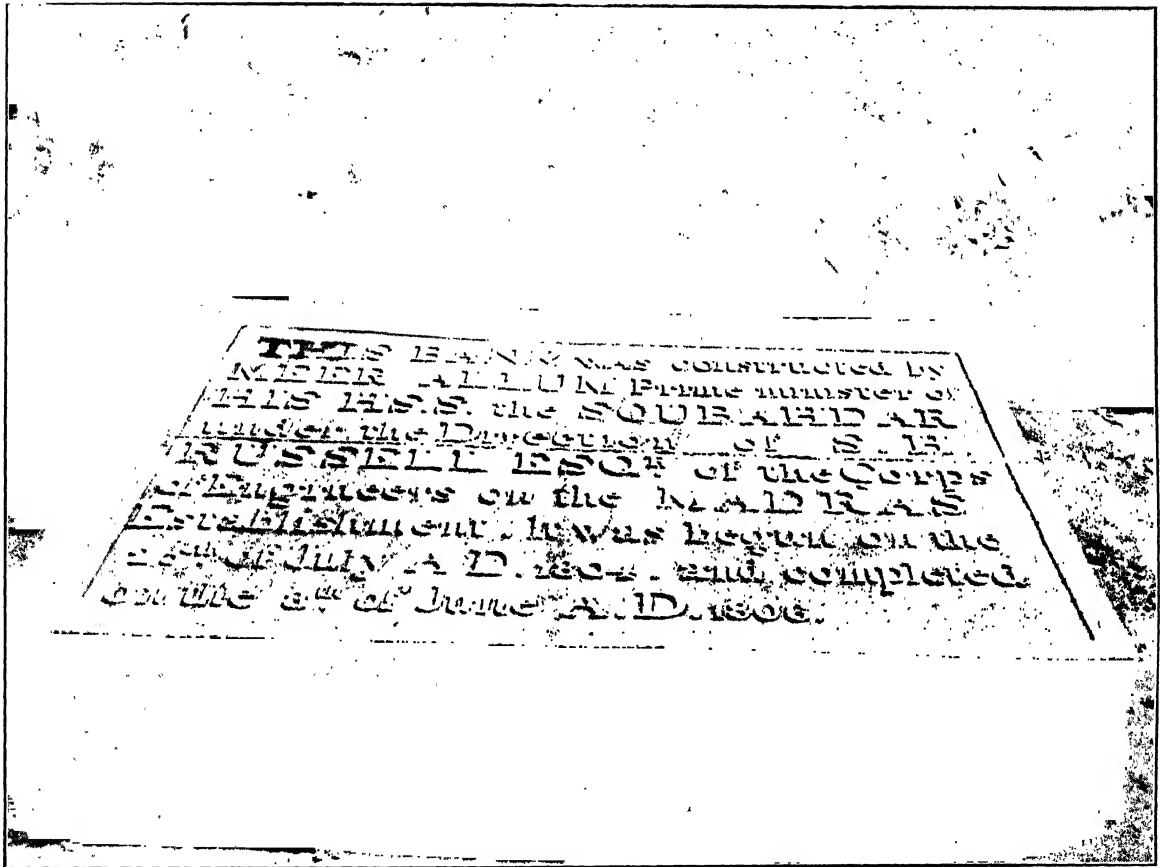 THIS BANK was constructed by
MEER ALLUM Prime minister of
HIS HS.S. the SOUBAHDAR
under the Direction of S. R.
RUSSELL ESQR. of the Corps
of Engineers on the MADRAS
Establishment. It was begun on the
of July A D. 1804. and completed.
on the 8th of June A. D. 1806.